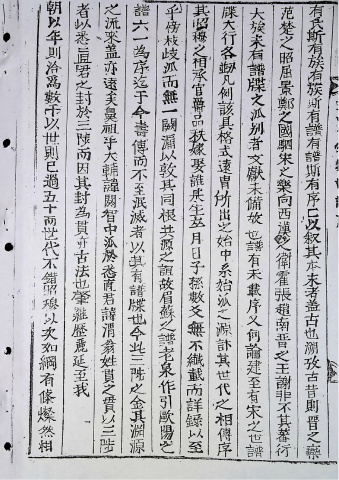 有氏斯有族有族斯有譜有譜斯有序所以叙其本末者盖古也溯攷古昔則晋之欒
范楚之昭屈景鄭之國駟宋之樂向西漢之衛霍張趙南晋之王謝非不其蕃衍
大族未有譜牒之派別者文獻未備故也譜有未載序又何論建至有宋之世譜
牒大行各動凡例該具格式遠胄所出之始中系始派之源計其世代之相傳序
其昭穆之相承官爵品秩嫁娶誰氏生卒月日子孫數爻無不纖載而詳錄以至
乎傍枝岐派而無一闕漏以敦其同根共源之誼故眉蘇之譜老泉作引歐陽之
譜六一為序迄于今壽傳而不至泯滅者以其有譜牒也今此三陟之金其淵源
之流來盖亦遠矣奧祖乎大輔諱閼智中派於悉直君諱渭翁姓貫之貫以三陟
者以悉直君之封於三陟而因其封為貫亦古法也肇羅歷麗延至我
朝以年則洽為數千以世則已過五十而世代不錯昭穆以次如綱有條燦然相